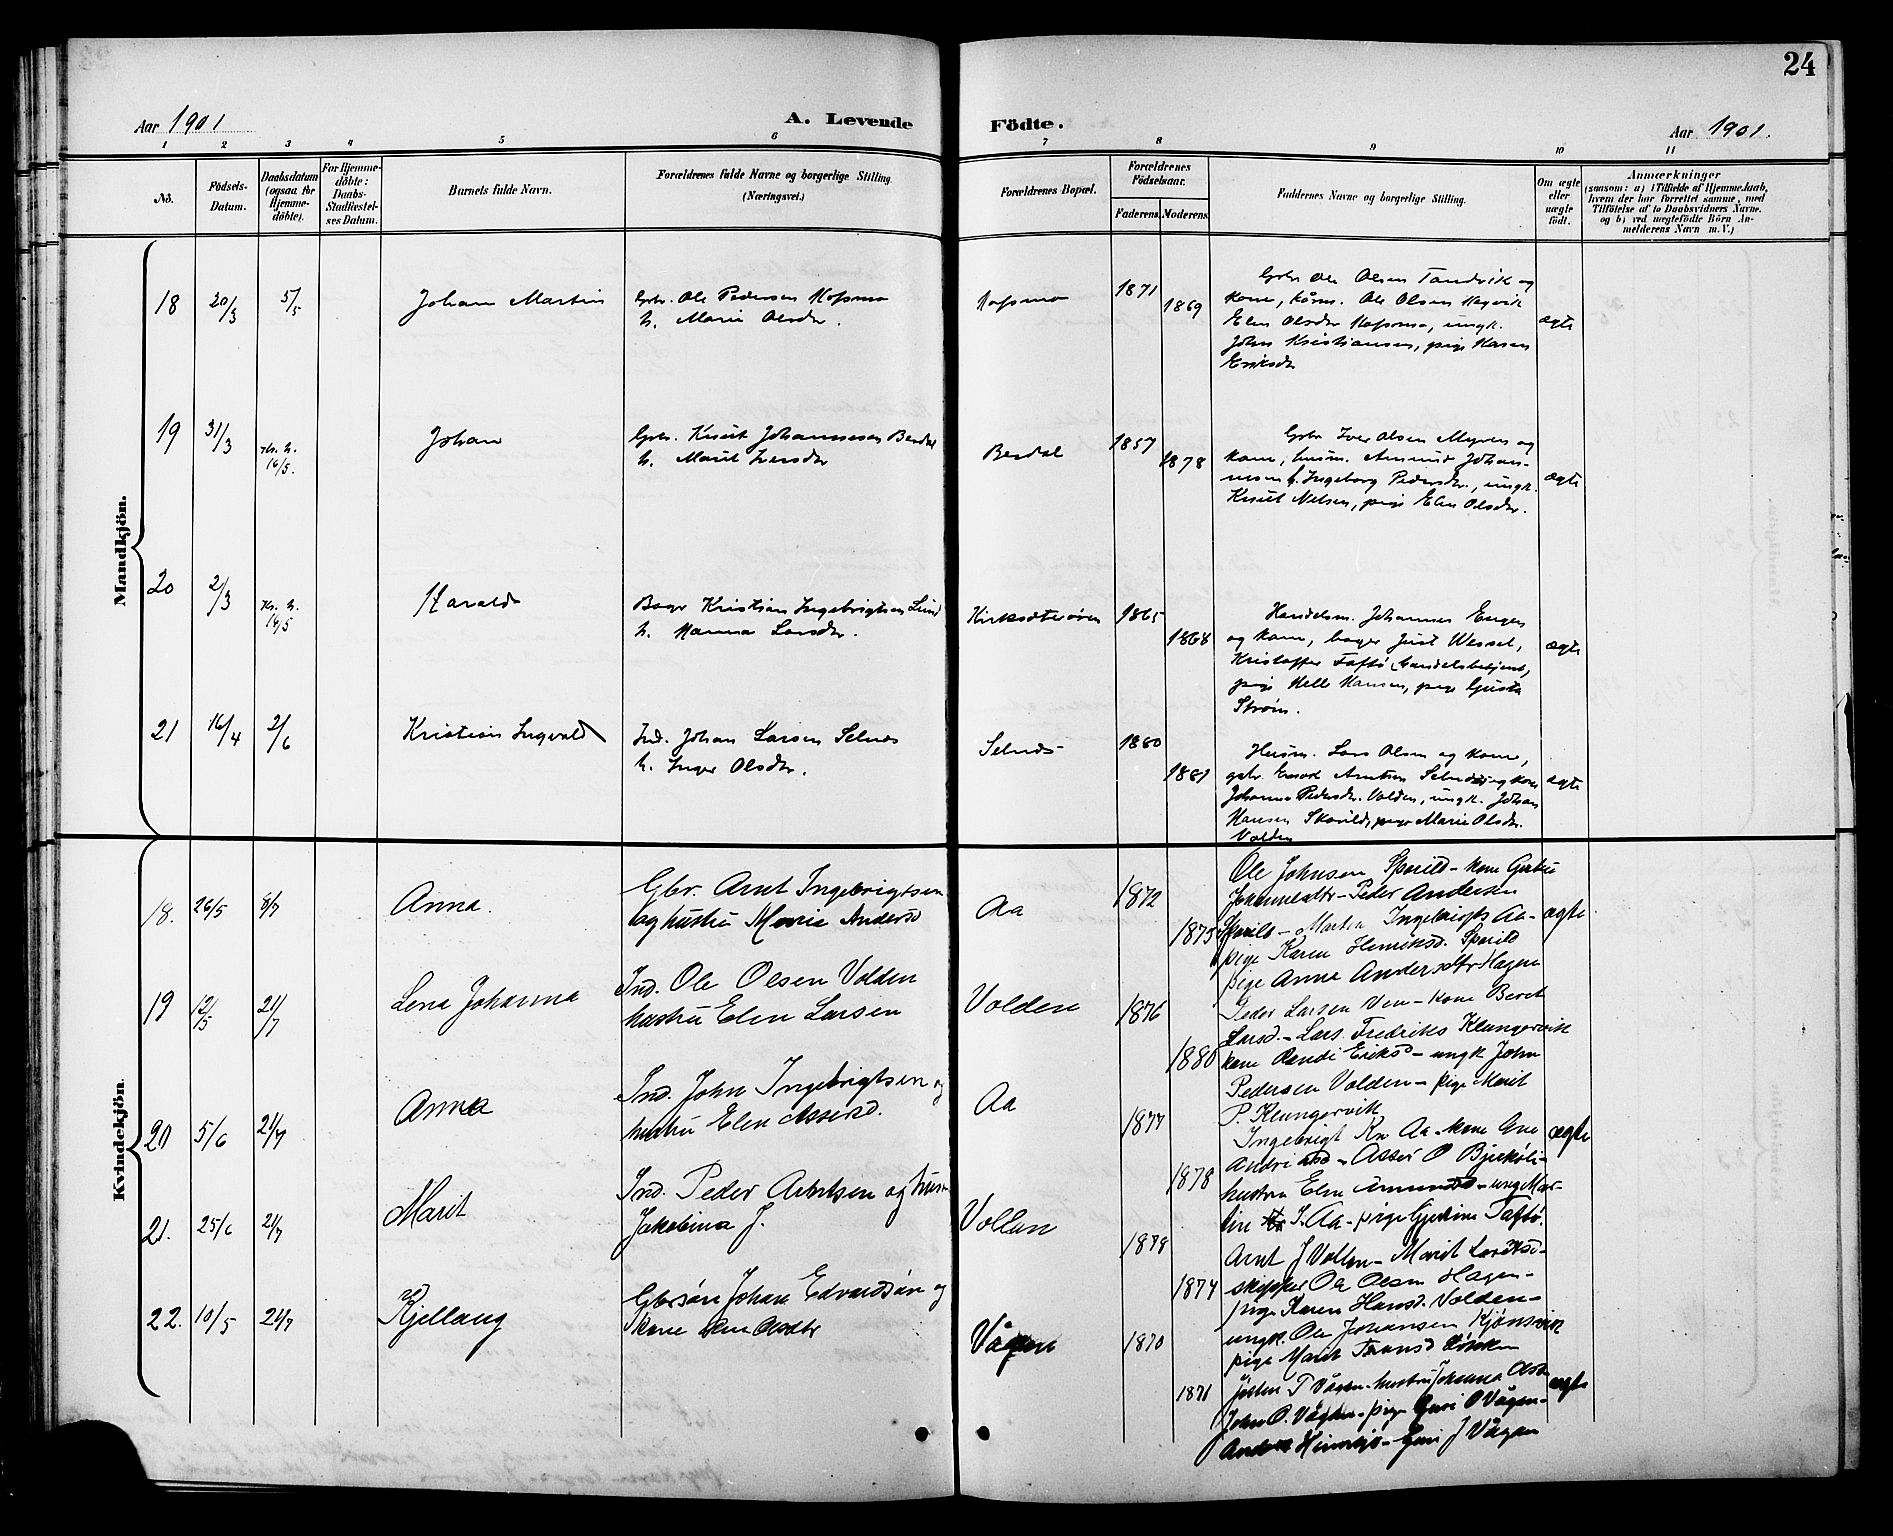 24
Aar 1901
A. Levende
Födte.
Aar 1901.
1 2 3 4 5 6 7 8 9 10 11
No.
Födsels-
Datum.
Daabsdatum
(ogsaa for
Hjemme-
döbte).
For Hjemme-
döbte:
Daabs-
Stadfæstel-
ses Datum.
Barnets fulde Navn.
Forældrenes fulde Navne og borgerlige Stilling.
(Næringsvei.)
Forældrenes Bopæl.
Forældrenes
Födselsaar.
Faderens.
Moderens.
Faddernes Navne og borgerlige Stilling.
Om ægte
eller
uægte
födt.
Anmærkninger
(saasom: a) i Tilfælde af Hjemmedaab,
hvem der har forrettet samme, med
Tilföielse af to Daabsvidners Navne.
og b) ved uægtefödte Börn An-
melderens Navn m. V.)
Mandkjön.
18 20/3 5/5 Johan Martin
Gbr. Ole Pedersen Hofsmo
h. Marie Olsdr.
Hofsmo 1871 1869
Gbr Ole Olsen Tandvik og
kone, kårm. Ole Olsen Hagvik
Elen Olsdr Hofsmo, ungk.
John Kristiansen, pige Karen
Eriksdr
ægte
19 31/3 16/5. Johan
Gbr. Knut Johannesen Berdal
h. Marit Iversdr
Berdal 1857 1878
Gbr Iver Olsen Myren og
kone, husm. Amund Johan-
nesen h. Ingeborg Pedersdr., ungk.
Knut Nelsen, pige Elen Olsdr.
ægte
20 2/3 16/5 Harald
Bager Kristian Ingebrigtsen Lund
h. Hanna Larsdr.
Kirksæterøren 1865 1868
Handelsm. Johannes Engen
og kone, bager Just Wessel,
Kristoffer Taftø (handelsbetjent,
pige Helle Hansen, pige Gjusta
Strøm.
ægte
21 16/4 2/6 Kristian Ingvald
Ind. Johan Larsen Selnes
h. Inger Olsdr.
Selnes 1860 1881
Husm. Lars Olsen og kone,
gbr. Arntsen Selnes og kone
Johanna Pedersdr. Volden, ungk. Johan
Hansen Skarild, pige Marie Olsdr.
Volden
ægte
Kvindekjön.
18. 26/5 8/7 Anna.
Gbr. Arnt Ingebrigtsen
og hustru Marie Andersd
Aa 1872 1875
Ole Johnsen Sparild - kone
Peder Andersen
Sparild - Martin Ingebrigts Aa -
pige Karen Henriksd. Sparild
pige Anna Andersdtr Hagen
ægte
19 12/5 21/7 Lena Johanna
Ind. Ole Olsen Volden
hustru Elen Larsen
Volden 1876 1880
Peder Larsen Ven - kone Beret
Larsd. - Lars Fredriks Klungervik
kone Randi Eriksd - ungk John
Pedersen Volden - pige Marit
P. Klungervik
20 5/6 21/7 Anna
Ind. John Ingebrigtsen og
hustru Elen Assersd.
Aa 1877 1878
Ingebrigt Kn Aa - kone Ane
Asser O Bjerkøli -
hustru Elen - ung Mar-
tin I. Aa - pige Gjertine Taftø.
ægte
21. 25/6 21/7 Marit
Ind. Peder Arntsen og hus
Jakobina J.
Vollan 1878 1874
Arnt J Vollan - Marit Larsd -
skipper Ole Olsen Hagen -
pige Karen Hansd. Volden -
ungk. Ole Johansen Kjønsvik
pige Marit
22. 10/5 21/7 Kjellaug
Gbrsøn Johan Edvardsøn og
kone Elen Olsdtr
Vågen 1870 1871
P Vågen - hustru Johanna Olsd
John O. Vågen - pige Guri O Vågen -
Anders Heimsjø - Guri J Vågen
ægte